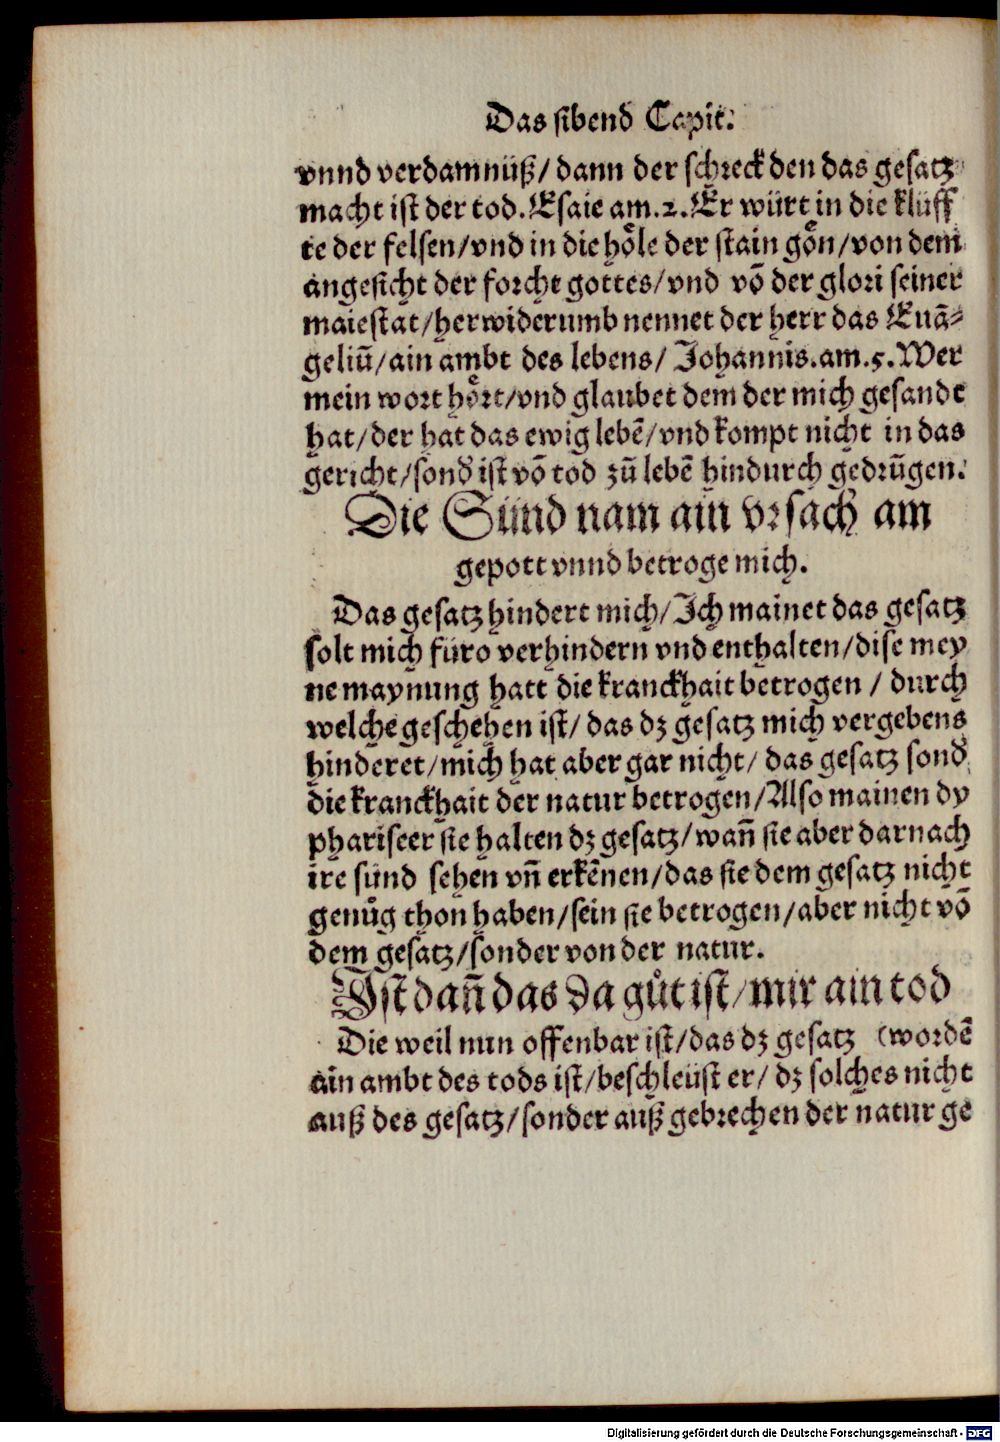 Das sibend Capit.
vnnd verdamnüß/ dann der schreck den das gesatz
macht ist der tod. Esaie am.2. Er würt in die klüff
te der felsen/vnd in die hoͤle der stain goͤn/von dem
angesicht der forcht gottes/vnd võ der glori seiner
maiestat/herwiderumb nennet der herr das Euã-
geliũ/ain ambt des lebens/ Johannis.am.5.Wer
mein wort hoͤrt/vnd glaubet dem der mich gesandt
hat/der hat das ewig lebẽ/vnd kompt nicht in das
gericht/sond ist võ tod zũ lebẽ hindurch gedrũgen.
Die Sünd nam ain vrsach am
gepott vnnd betroge mich.
Das gesatz hindert mich/Ich mainet das gesatz
solt mich füro verhindern vnd enthalten/dise mey
ne maynung hatt die kranckhait betrogen / durch
welche geschehen ist/ das dz gesatz mich vergebens
hinderet/mich hat aber gar nicht/ das gesatz sond
die kranckhait der natur betrogen/Also mainen dy
phariseer sie halten dz gesatz/wañ sie aber darnach
ire sünd sehen vñ erkẽnen/das sie dem gesatz nicht
genůg thon haben/sein sie betrogen/aber nicht võ
dem gesatz/sonder von der natur.
Ist dañ das da gůt ist/mir ain tod
Die weil nun offenbar ist/das dz gesatz (wordẽ
ain ambt des tods ist/beschleüst er/ dz solches nicht
auß des gesatz/sonder auß gebrechen der natur ge
Digitalisierung gefördert durch die Deutsche Forschungsgemeinschaft - DFG